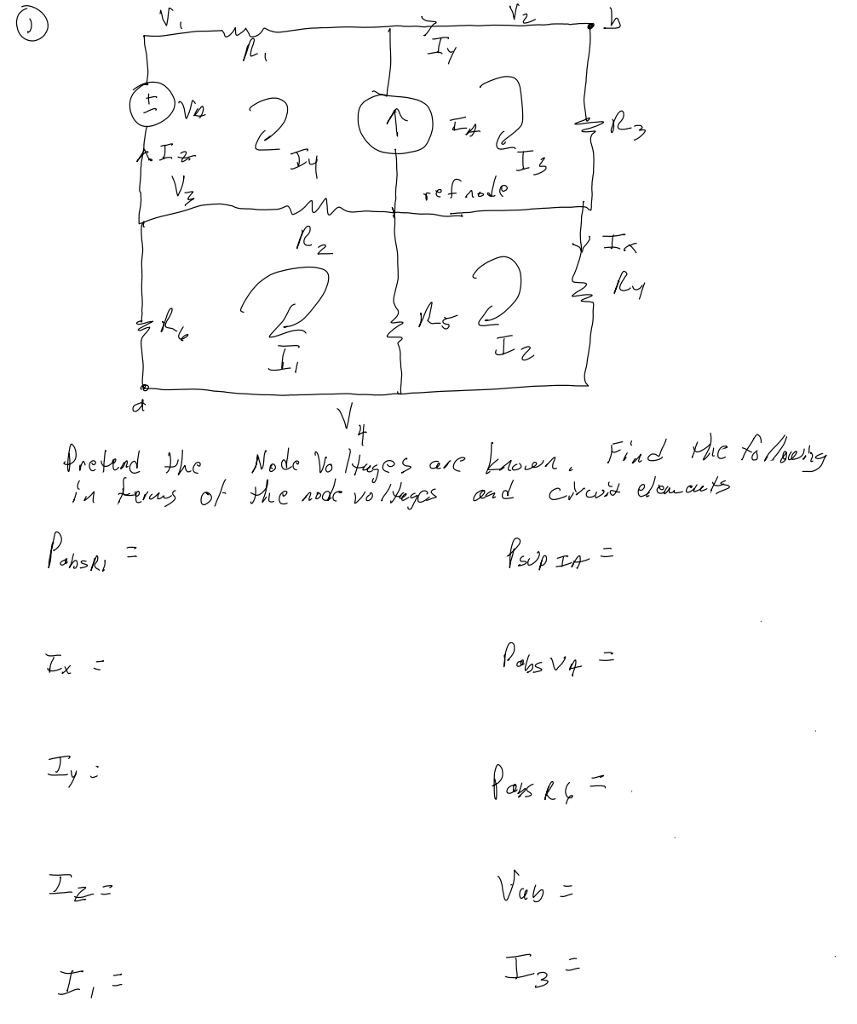 1)
V1 R1 Iy V2 b
+ - VA I4 IA I3 R3
Iz
V3 ref node
R2 Ix
R6 I1 R5 I2 R4
a
V4
Pretend the Node Voltages are known. Find the following
in terms of the node voltages and circuit elements
PabsR1 = Psup IA =
Ix = Pabs VA =
Iy = Pabs R6 =
Iz = Vab =
I1 = I3 =